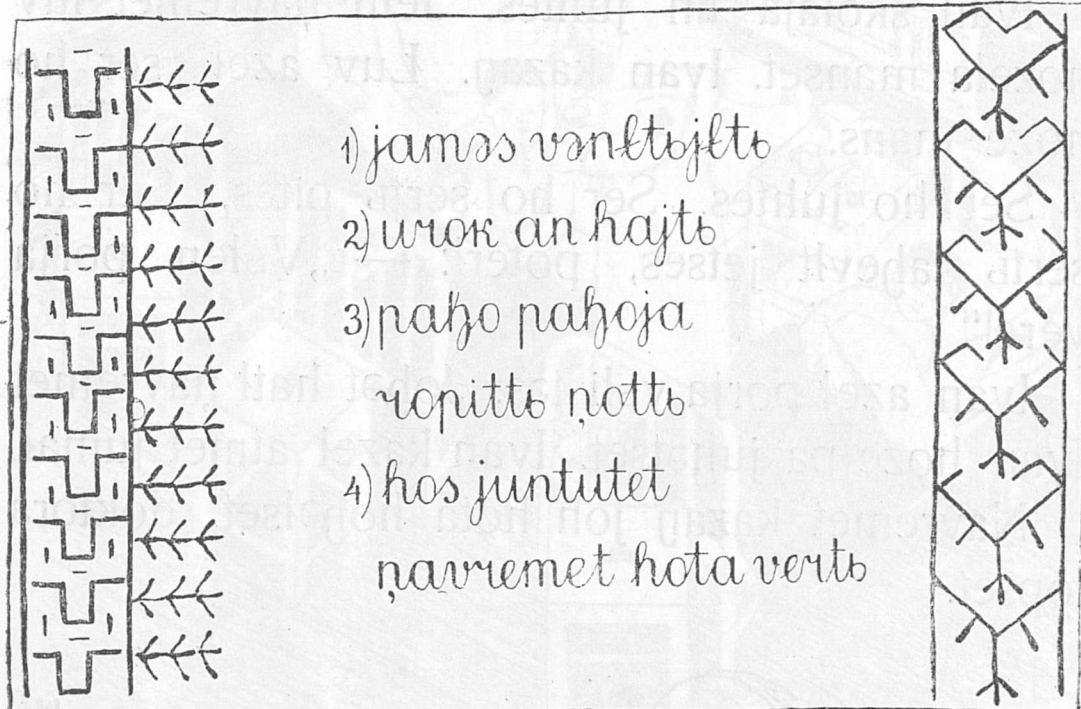 1) jaməs vənłtьjłtь
2) urok an hajtь
3) paⱨo paⱨoja
ropittь ņottь
4) hos juntutet
ņavremet hota vertь